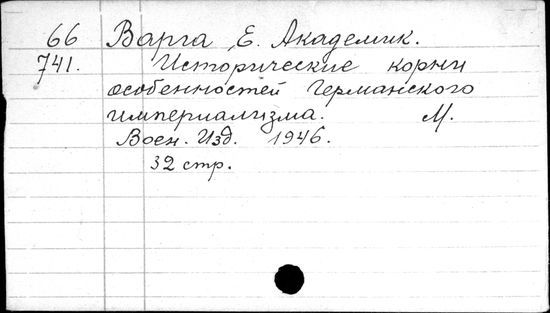 66 Варга, Е. Академик.
741. Исторические корни
особенностей Германского
империализма. М.
Воен. Изд. 1946.
32 стр.